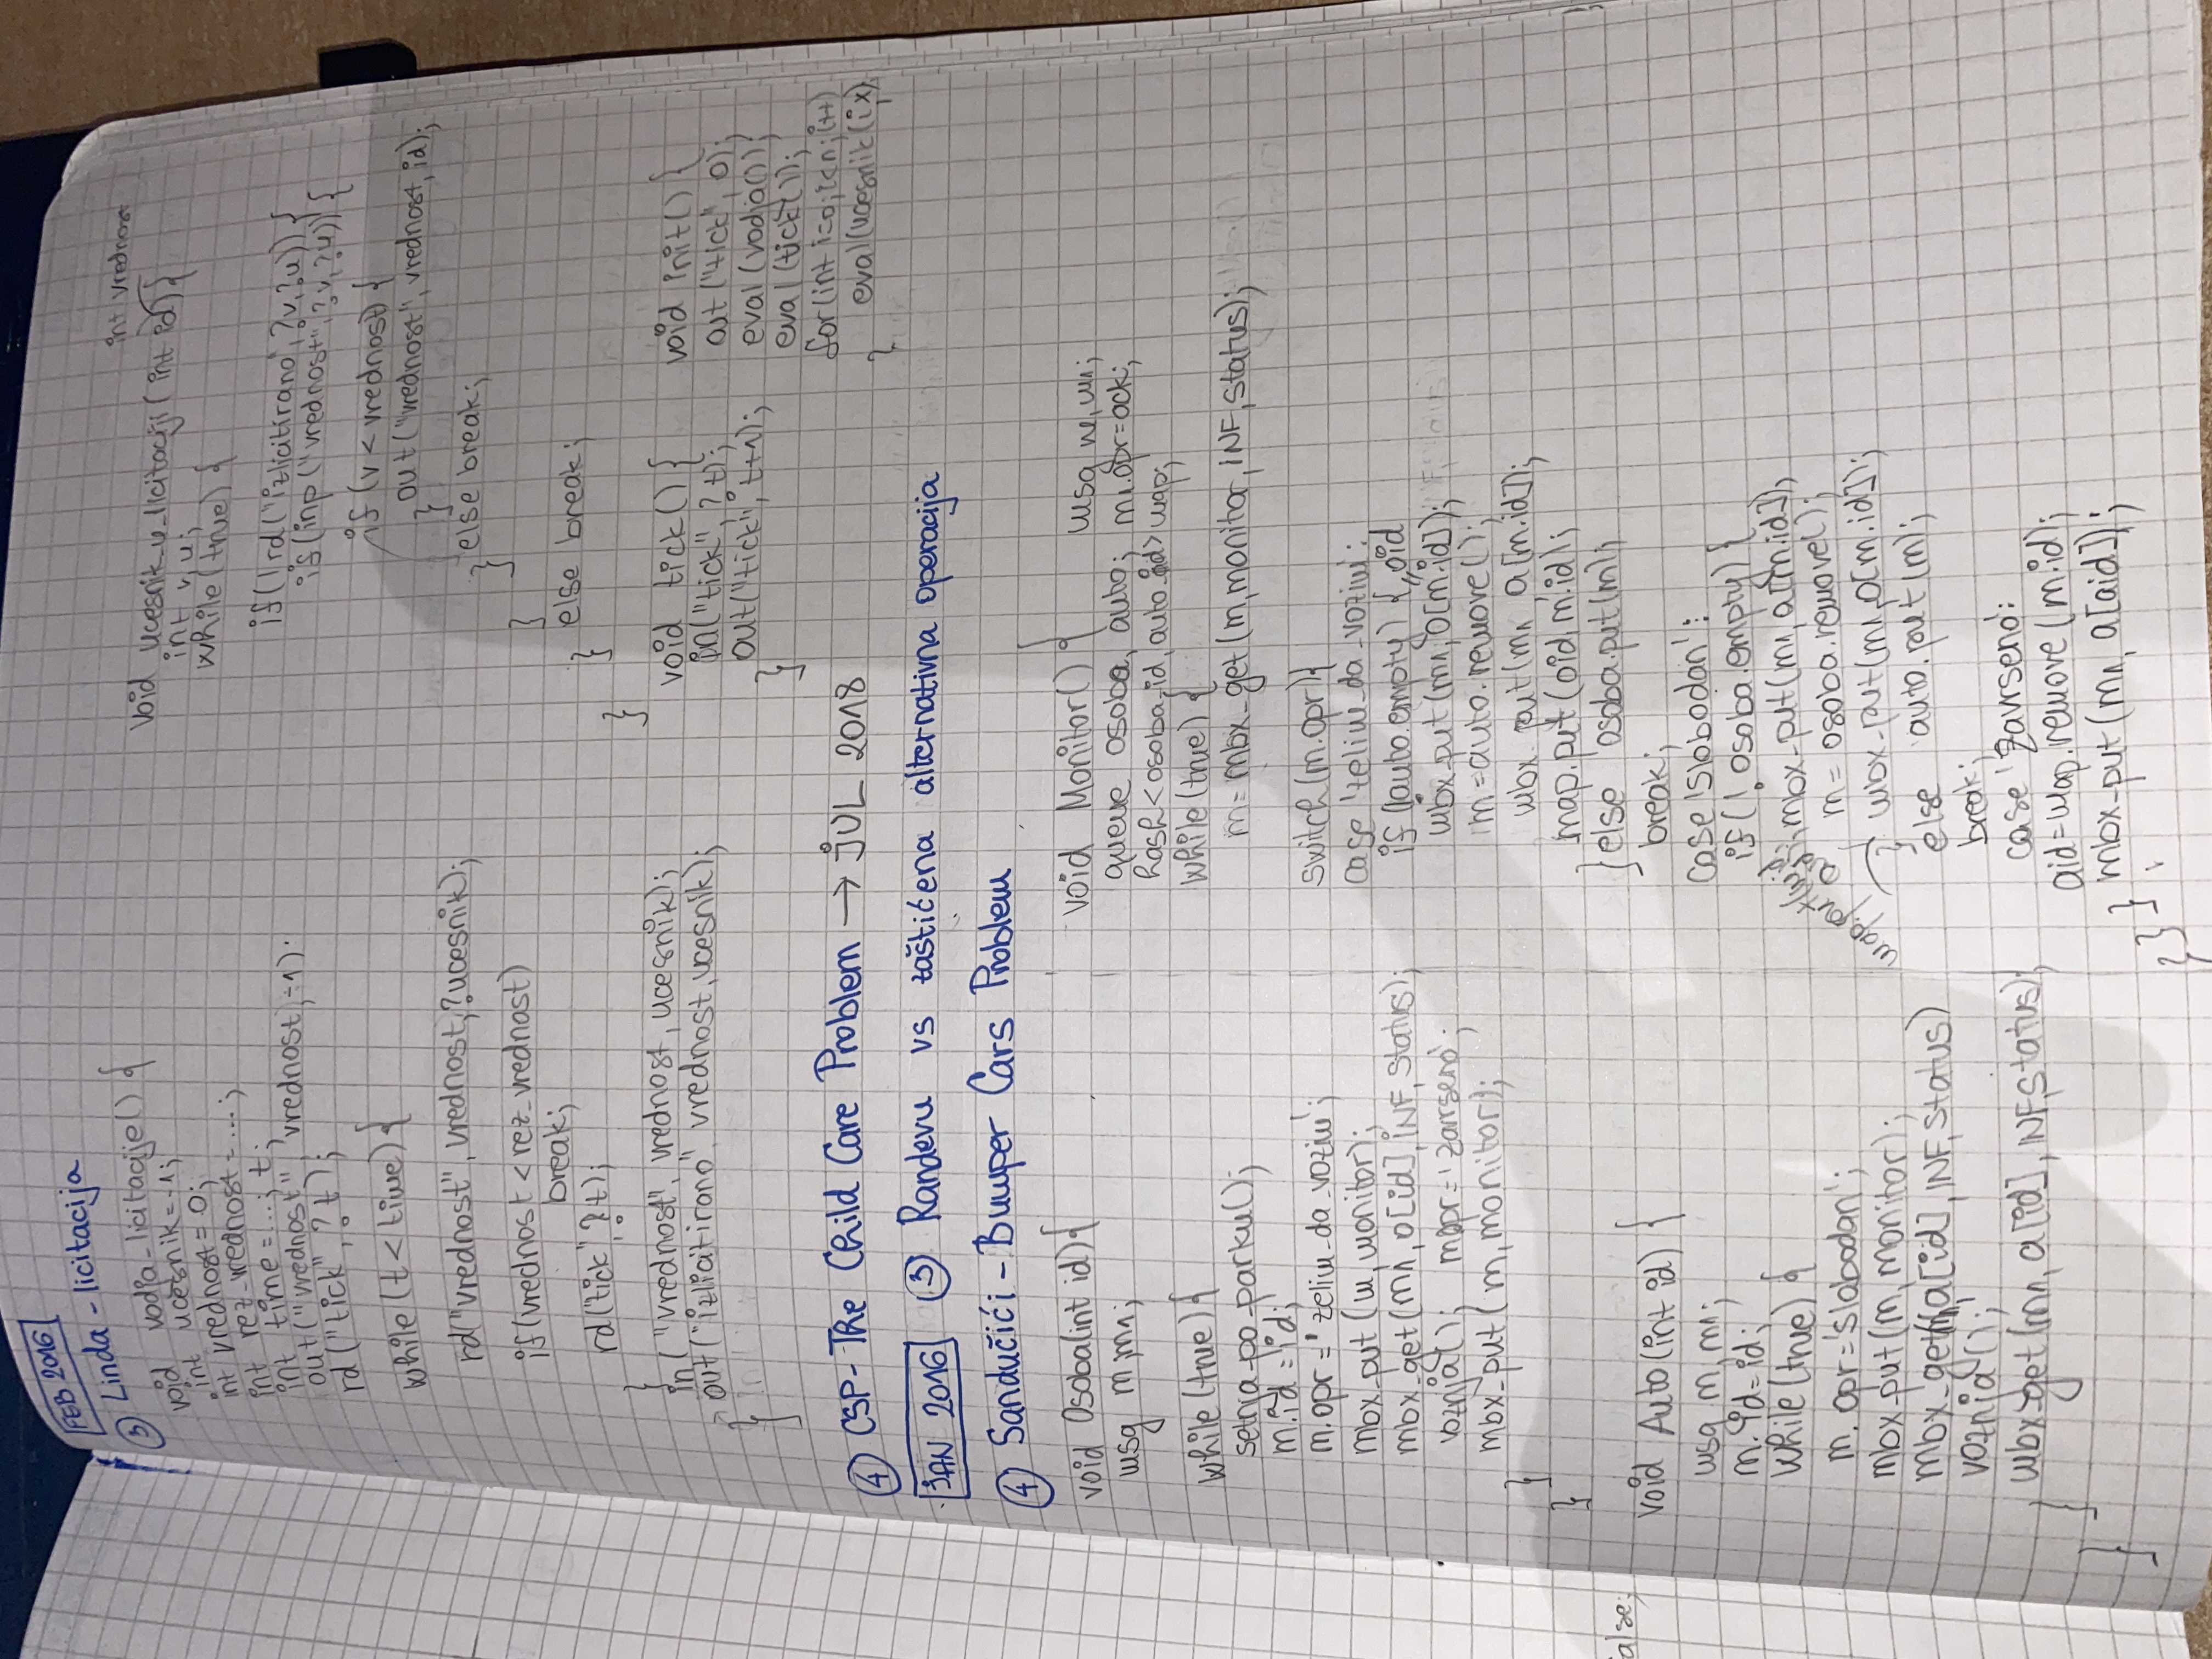 FEB 2016
③ Linda - licitacija
void vodja_licitacije() {
int ucesnik=-1;
int vrednost=0;
int rez_vrednost=...;
int time=...; t;
out("vrednost", vrednost, -1);
rd("tick", ?t);
while (t < time) {
rd("vrednost", vrednost, ?ucesnik);
if(vrednost < rez_vrednost)
break;
rd("tick", ?t);
}
in("vrednost", vrednost, ucesnik);
out("izlicitirano", vrednost, ucesnik);
}
int vrednost
void ucesnik_u_licitaciji( int id) {
int v,u;
while(true) {
if(!rd("izlicitirano", ?v,?u)) {
if(inp("vrednost", ?v,?u)) {
if (v < vrednost) {
out("vrednost", vrednost, id);
}
else break;
}
}
else break;
}
}
void tick() {
in("tick", ?t);
out("tick", t+1);
}
void init() {
out("tick", 0);
eval(vodja());
eval(tick());
for(int i=0; i<n; i++)
eval(ucesnik(i,x)
}
④ CSP- The Child Care Problem → JUL 2018
JAN 2016 ③ Randevu vs zaštićena alternativna operacija
④ Sandučići - Bumper Cars Problem
void Osoba(int id){
msg m,m1;
while(true){
setnja_po_parku();
m.id = id;
m.opr = 'zelim_da_vozim';
mbx_put (m, monitor);
mbx_get(m1, o[id], INF, status);
voznja(); m.opr='zavrseno';
mbx_put( m, monitor);
}
}
alse;
void Auto(int id) {
msg m, m1;
m.id=id;
while(true) {
m.opr='slobodan';
mbx_put(m, monitor);
mbx_get(m1,a[id], INF, status)
voznja();
mbx_get(m1, a[id], INF,status);
}
}
void Monitor() { msg m, m1;
queue osoba, auto; m1.opr=ack;
hash<osoba_id, auto_id> map;
while(true) {
m= mbx_get(m,monitor,INF,status);
switch(m.opr){
case 'zelim_da_vozim':
if (!auto.empty) { oid
mbx_put(m1, o[m.id]);
m=auto.remove();
mbx_put(m1, a[m.id]);
map.put(oid, m.id);
}else osoba.put(m);
break;
case 'slobodan':
if(! osoba.empty) {
mbx_put(m1, a[m.id]);
m= osoba.remove();
mbx_put(m1,o[m.id]);
map.put(m.id, aid);
}
else auto.put(m);
break;
case 'zavrseno':
aid=map.remove(m.id);
mbx_put(m1, a[aid]);
}
}
}